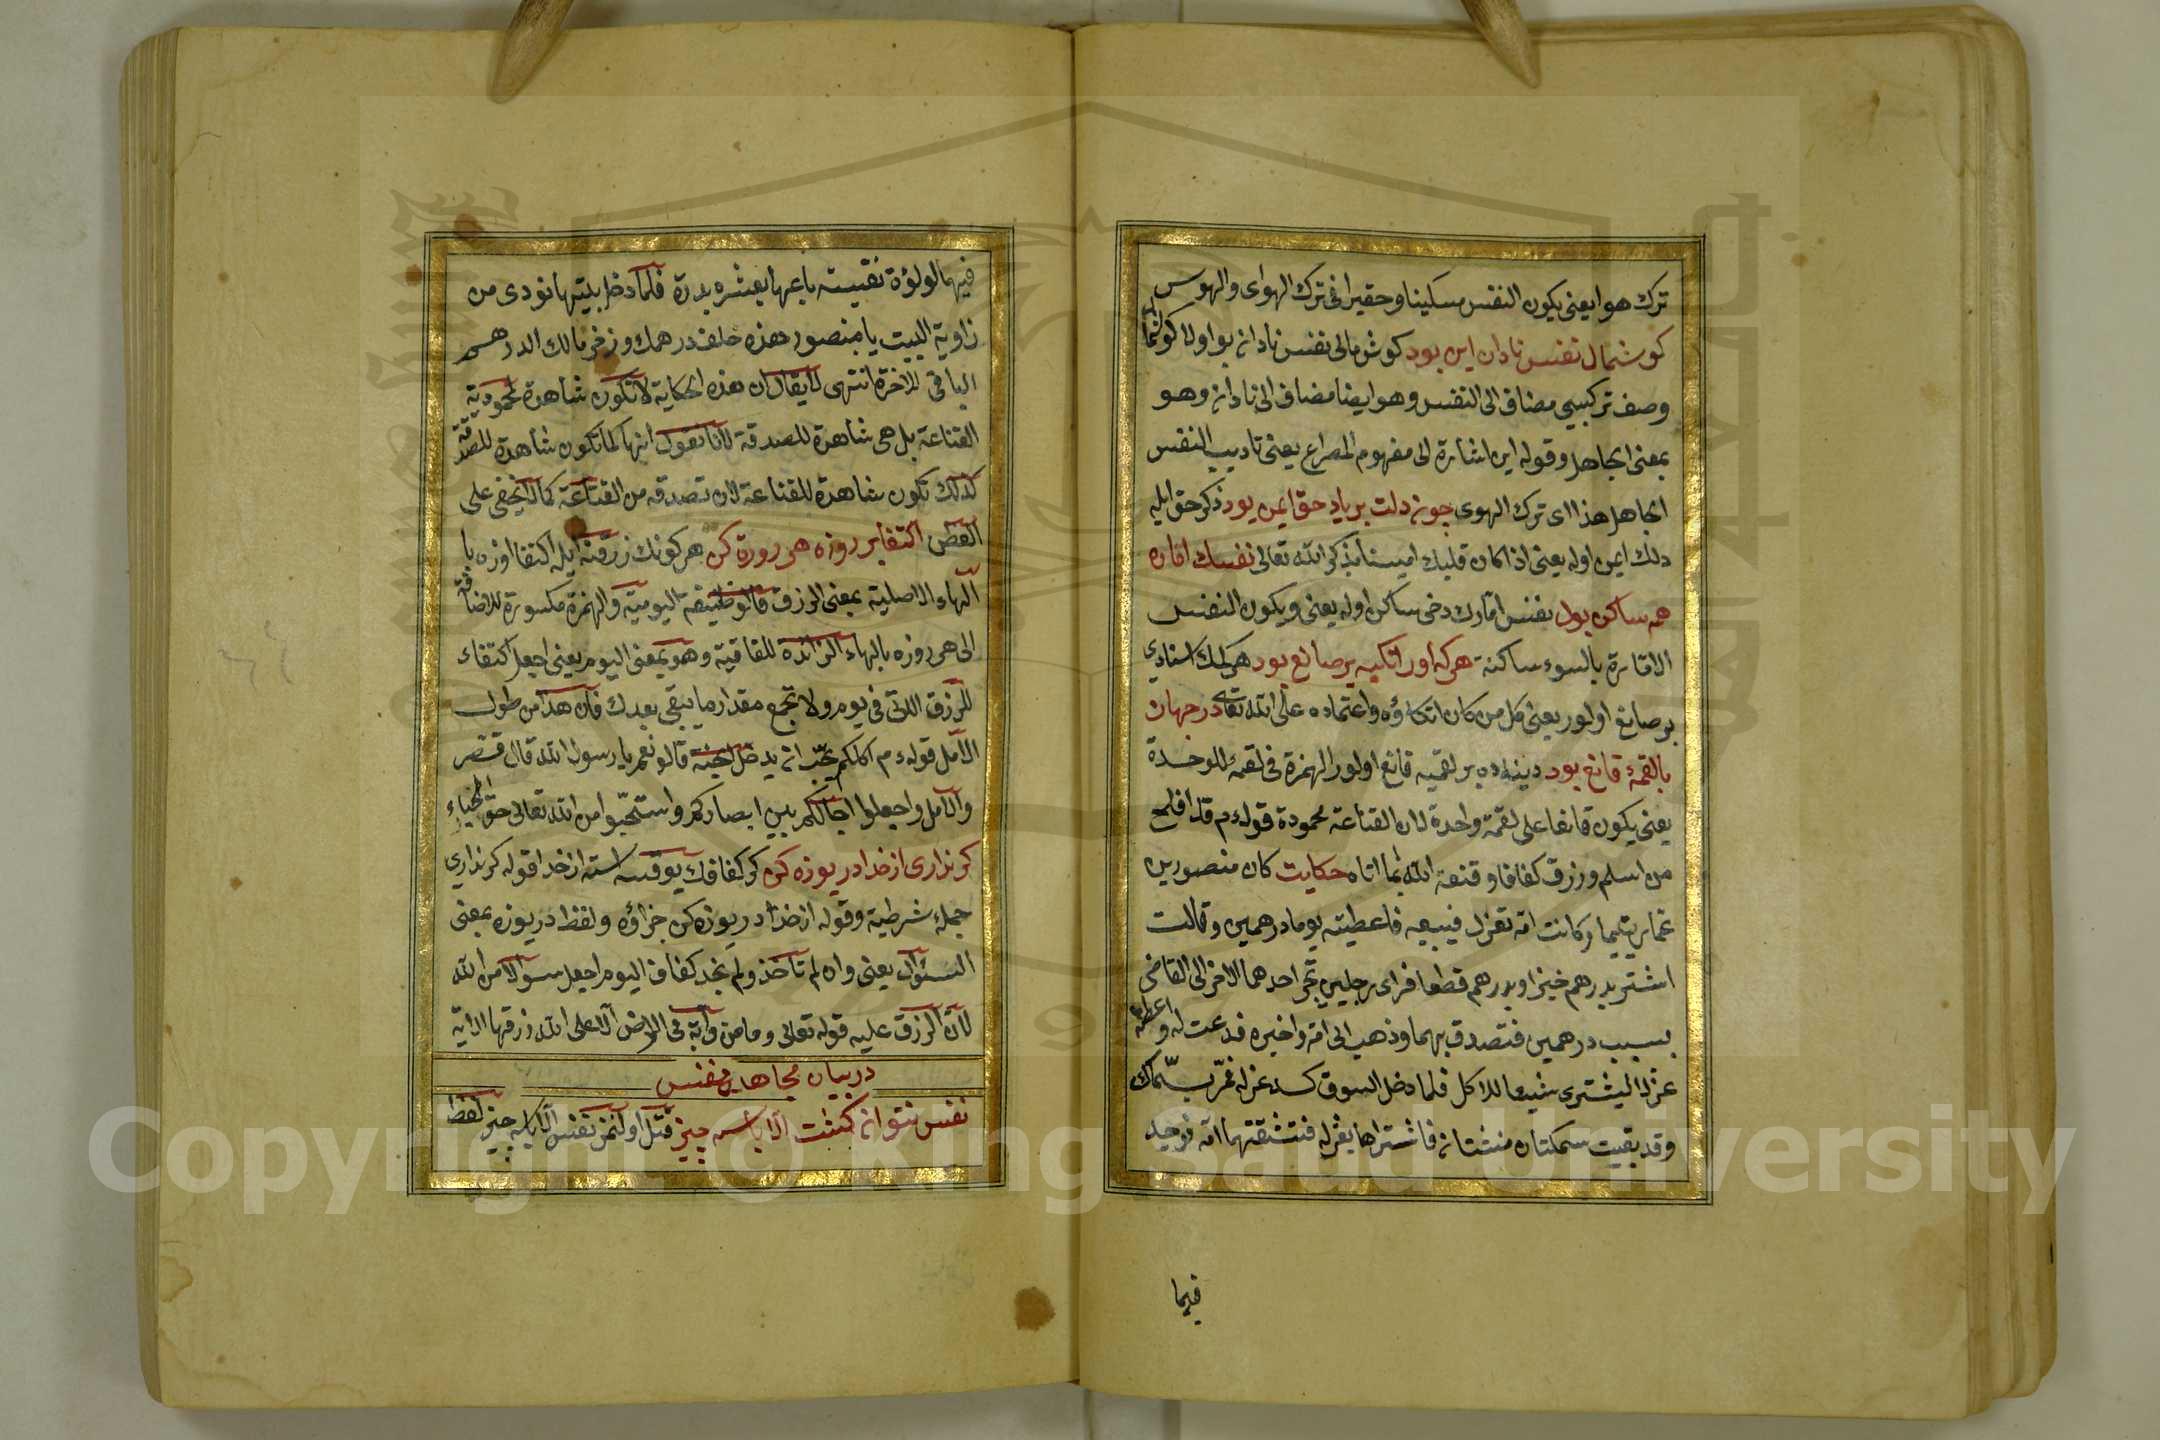 ترك هوا يعنى يكون النفس مسكينا وحقيرا فى ترك الهواى والهوس
كوشمال نفس نادان اين بود كوش مالى نفس نادانه بو اولا كوشمال
وصف تركيبى مضاف الى النفس وهو ايضا مضاف الى نادانه وهو
بمعنى الجاهل وقوله اين اشارة الى مفهوم المصراع يعنى تاديب النفس
الجاهل هذا اى ترك الهوى چونه دلت بر ياد حق ايمن بود ذكر حق ايله
دلك ايمن اوله يعنى اذا كان قلبك امينا بذكر الله تعالى نفسك اماره
هم ساكن بول نفس اماره دخى ساكن اوله يعنى ويكون النفس
الامارة بالسوء ساكنة هركه اورا تكيه بر صانع بود هر كمك استنادى
بر صانع اولور يعنى كل من كان اتكاؤه واعتماده على الله تعالى در جهان
بالقمۀ قانع بود دينده بر لقميه قانع اولور الهمزة فى لقمۀ للوحدة
يعنى يكون قانعا على لقمة واحدة لان القناعة محمودة قوله عم قد افلح
من اسلم ورزق كفافا وقنعه الله بما اتاه حكايت كان منصور بن
عمار يتيما وكانت امه تغزل فيبيعه فاعطيته يوما درهمين وقالت
اشتر بدرهم خبزا وبدرهم قطنا فراى رجلين يجر احدهما الاخر الى القاضى
بسبب درهمين فتصدق بهما وذهب الى امه واخبره فدعت له واعطته
غزلا ليشترى شيئا للاكل فلما دخل السوق كسد غزله فمر بسماك
وقد بقيت سمكتان منتنتانه فاشتراها بغزله فتشققتهما امه فوجد
فيما
فيهما لؤلؤة نفيسة باعها بعشره بدرة فلما دخل بيتها نودى من
زاوية البيت يا منصور هذه خلف درهمك وذخر مالك الدرهم
الباقى للاخرة انتهى لا يقال ان هذه الحكاية لا تكون شاهدة لمحمودية
القناعة بل هى شاهدة للصدقة لانا نقول انها كما تكون شاهدة للصدقة
كذلك تكون شاهدة للقناعة لان تصدقه من القناعة كما لا يخفى على
الفطن اكتفا بر روزه هر روزه كن هر كونك رزقنه ايله اكتفا روزه با
الهاء الاصلية بمعنى الرزق قالوظيفة اليومية والهمزة مكسورة للاضافة
الى هر روزه بالهاء الزائدة للقافية وهو بمعنى اليوم يعنى اجعل اكتفاء
للرزق اللتى فى يوم ولا تجمع مقدار ما يبقى بعدك فان هذا من طول
الامل قوله عم اكلكم يحب انه يدخل الجنة قالو نعم يا رسول الله قال قصر
والامل واجعلوا اجالكم بين ابصاركم واستحيوا من الله تعالى حق الحياء
كر ندارى از خدا دريوزه كن كر كفافك يوقسه استه از خدا قوله كر ندارى
جملۀ شرطية وقوله از خدا دريوزه كن جزاؤه ولفظ دريوزه بمعنى
السئوال يعنى وان لم تاخذ ولم تجد كفاف اليوم اجعل سوالا من الله
لان الرزق عليه قوله تعالى وما من دآبة فى الارض الا على الله رزقها الاية
در بيان مجاهده نفس
نفس نتوانه كشت الا با سه چيز قتل اولنمز نفس الا با سه چيز لفظ